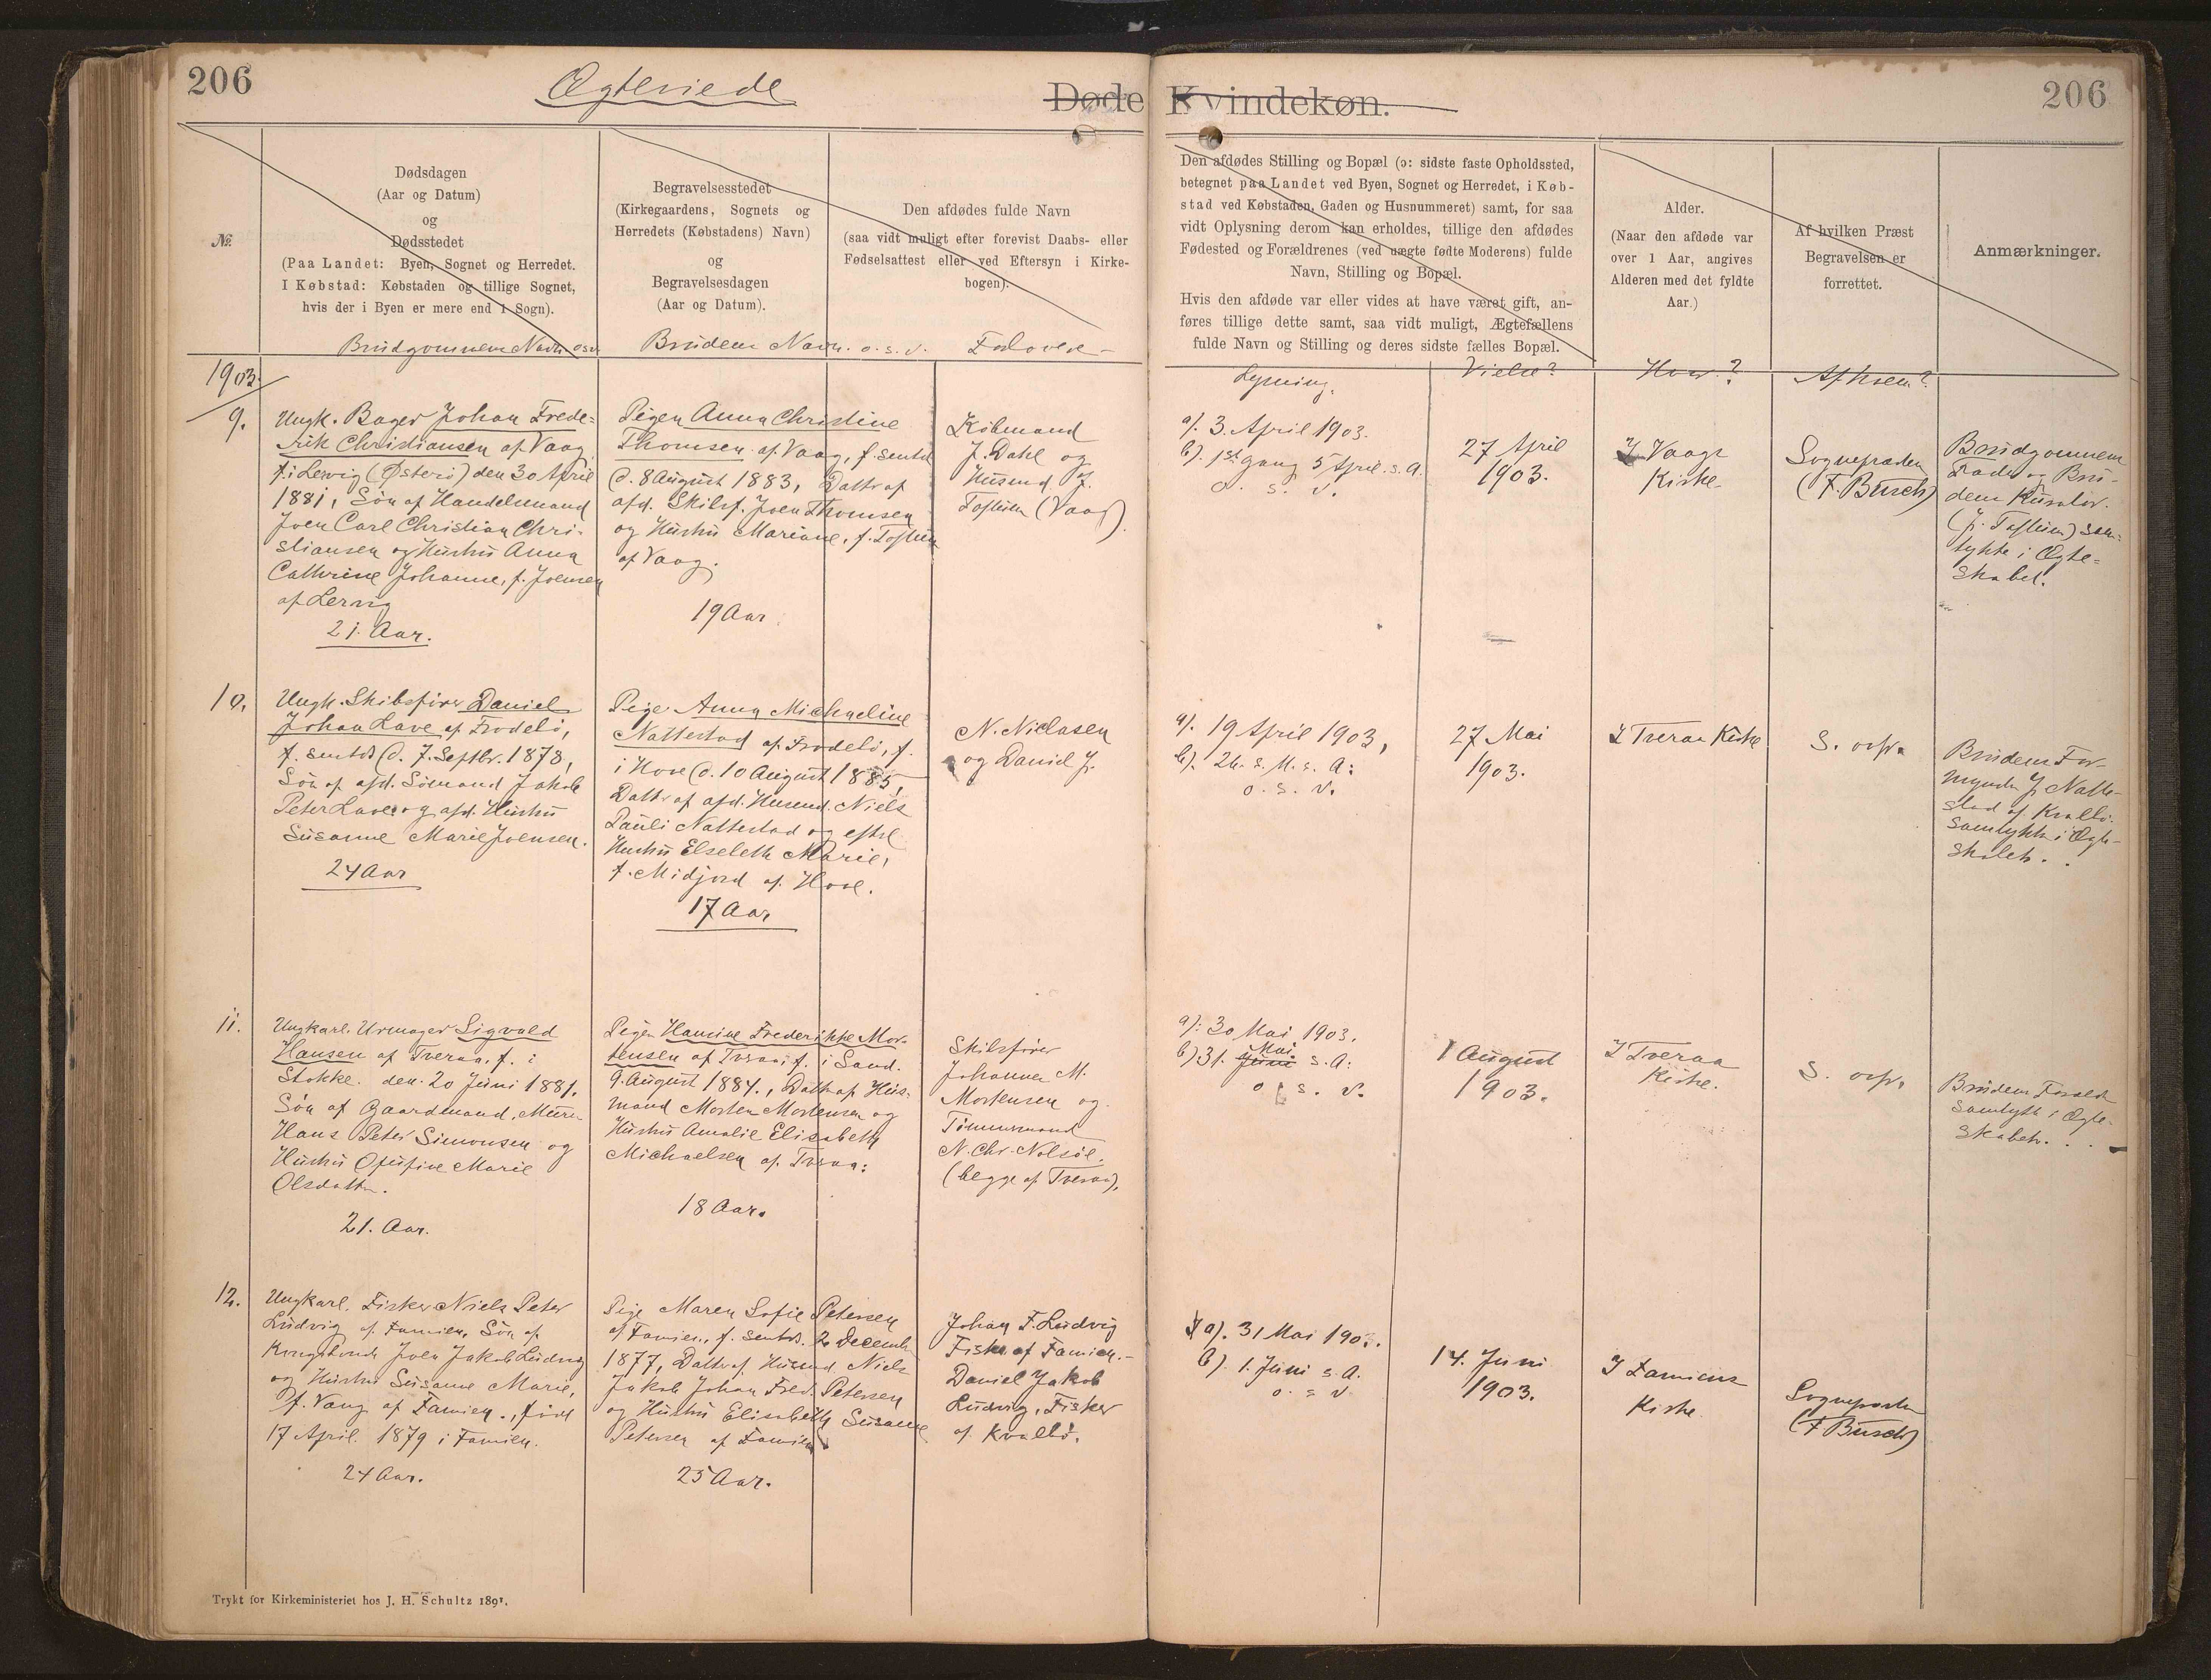 206
Ægteviede
Døde Kvindekøn.
206
№
Dødsdagen
(Aar og Datum)
og
Dødsstedet
(Paa Landet: Byen, Sognet og Herredet.
I Købstad: Købstaden og tillige Sognet,
hvis der i Byen er mere end 1 Sogn).
Brudgommens Navn osv.
Begravelsesstedet
(Kirkegaardens, Sognets og
Herredets (Købstadens) Navn)
og
Begravelsesdagen
(Aar og Datum).
Brudens Navn. o.s.v.
Den afdødes fulde Navn
(saa vidt muligt efter forevist Daabs- eller
Fødselsattest eller ved Eftersyn i Kirke-
bogen).
Forlovere
Den afdødes Stilling og Bopæl (ɔ: sidste faste Opholdssted,
betegnet paa Landet ved Byen, Sognet og Herredet, i Køb-
stad ved Købstaden, Gaden og Husnummeret) samt, for saa
vidt Oplysning derom kan erholdes, tillige den afdødes
Fødested og Forældrenes (ved uægte fødte Moderens) fulde
Navn, Stilling og Bopæl.
Hvis den afdøde var eller vides at have været gift, an-
føres tillige dette samt, saa vidt muligt, Ægtefællens
fulde Navn og Stilling og deres sidste fælles Bopæl.
Alder.
(Naar den afdøde var
over 1 Aar, angives
Alderen med det fyldte
Aar.)
Af hvilken Præst
Begravelsen er
forrettet.
Anmærkninger.
Lysning.
Vielse?
Hvor?
Af hvem?
1903.
9.
Ungk. Bager Johan Frede-
rik Christiansen af Vaag,
f. i Lervig (Østerø) den 30 April
1881, Søn af Handelsmand
Joen Carl Christian Chri-
stiansen og Hustru Anna
Cathrine Johanne, f. Joensen
af Lervig
21. Aar.
Pigen Anna Christine
Thomsen af Vaag, f. sentd
d. 8 August 1883, Dattr af
afd. Skibsf. Joen Thomsen
og Hustru Mariane, f.
af Vaag.
19 Aar
Købmand
J. Dahl og
Husmd. J.
(Vaag).
a). 3. April 1903.
b). 1st Gang 5 April s. A.
o. s. v.
27 April
1903.
I Vaags
Kirke
Sognepræsten
(F. Busch)
Brudgommens
Fader og Bru-
dens Kurator
sam-
tykke i Ægte-
skabet.
10.
Ungk. Skibsfører Daniel
Johan Lave af Frodebø,
f. sentds d. 7. Septbr. 1878,
Søn af afd. Sømand Jakob
Peter Lave og afd. Hustru
Susanne Marie Joensen.
24 Aar
Pige Anna Michaeline
Nattestad af Frodebø, f.
i Hove d. 10 August 1885,
Dattr af afd. Husmd. Niels
Pauli Nattestad og eftl.
Hustru Elsebeth Marie,
f. Midjord af Hove.
17 Aar
N. Niclasen
og Daniel J.
a). 19 April 1903,
b). 26. s. M. s. A.
o. s. v.
27 Mai
1903.
I Tveraa Kirke
S. ovfr.
Brudens For-
mynder J. Natte-
stad af Kvalbø
samtykke i Ægte-
skabet.
11.
Ungkarl. Urmager Sigvald
Hansen af Tveraa, f. i
Stokke. den. 20 Juni 1881.
Søn af Gaardmand, Murer
Hans Peter Simonsen og
Hustru Marie
Olsdatter.
21. Aar.
Pigen Hansine Frederikke Mor-
tensen af Tveraa, f. i Sand.
9. August 1884., Dattr af Hus-
mand Morten Mortensen og
Hustru Amalie Elisabeth
Michaelsen af Tveraa:
18 Aar.
Skibsfører
Johannes M.
Mortensen og
Tømmermand
N. Chr. Nolsøe.
(begge af Tveraa).
a): 30 Mai 1903.
b) 31. Juni Mai s. A:
o. s. v.
1 August
1903.
I Tveraa
Kirke.
S. ovfr.
Brudens Forældre
samtykke i Ægte-
skabet.
12.
Ungkarl. Fisker Niels Peter
Ludvig af Famien, Søn af
Kongsbonde Joen Jakob Ludvig
og Hustru Susanne Marie,
f. Vang af Famien., født
17 April. 1879 i Famien.
24 Aar.
Pige Maren Sofie Petersen
af Famien., f. sentds. 2 December
1877, Dattr af Husmd Niels
Jakob Johan Fred. Petersen
og Hustru Elisabeth Susanne
Petersen af Famien
25 Aar.
Johan F. Ludvig
Fisker af Famien.-
Daniel Jakob
Ludvig, Fisker
af Kvalbø.
a). 31 Mai 1903.
b). 1. Juni s. A.
o. s. v
14. Juni
1903.
I Famiens
Kirke
Sognepræsten
(F Busch)
Trykt for Kirkeministeriet hos J. H. Schultz 1891.